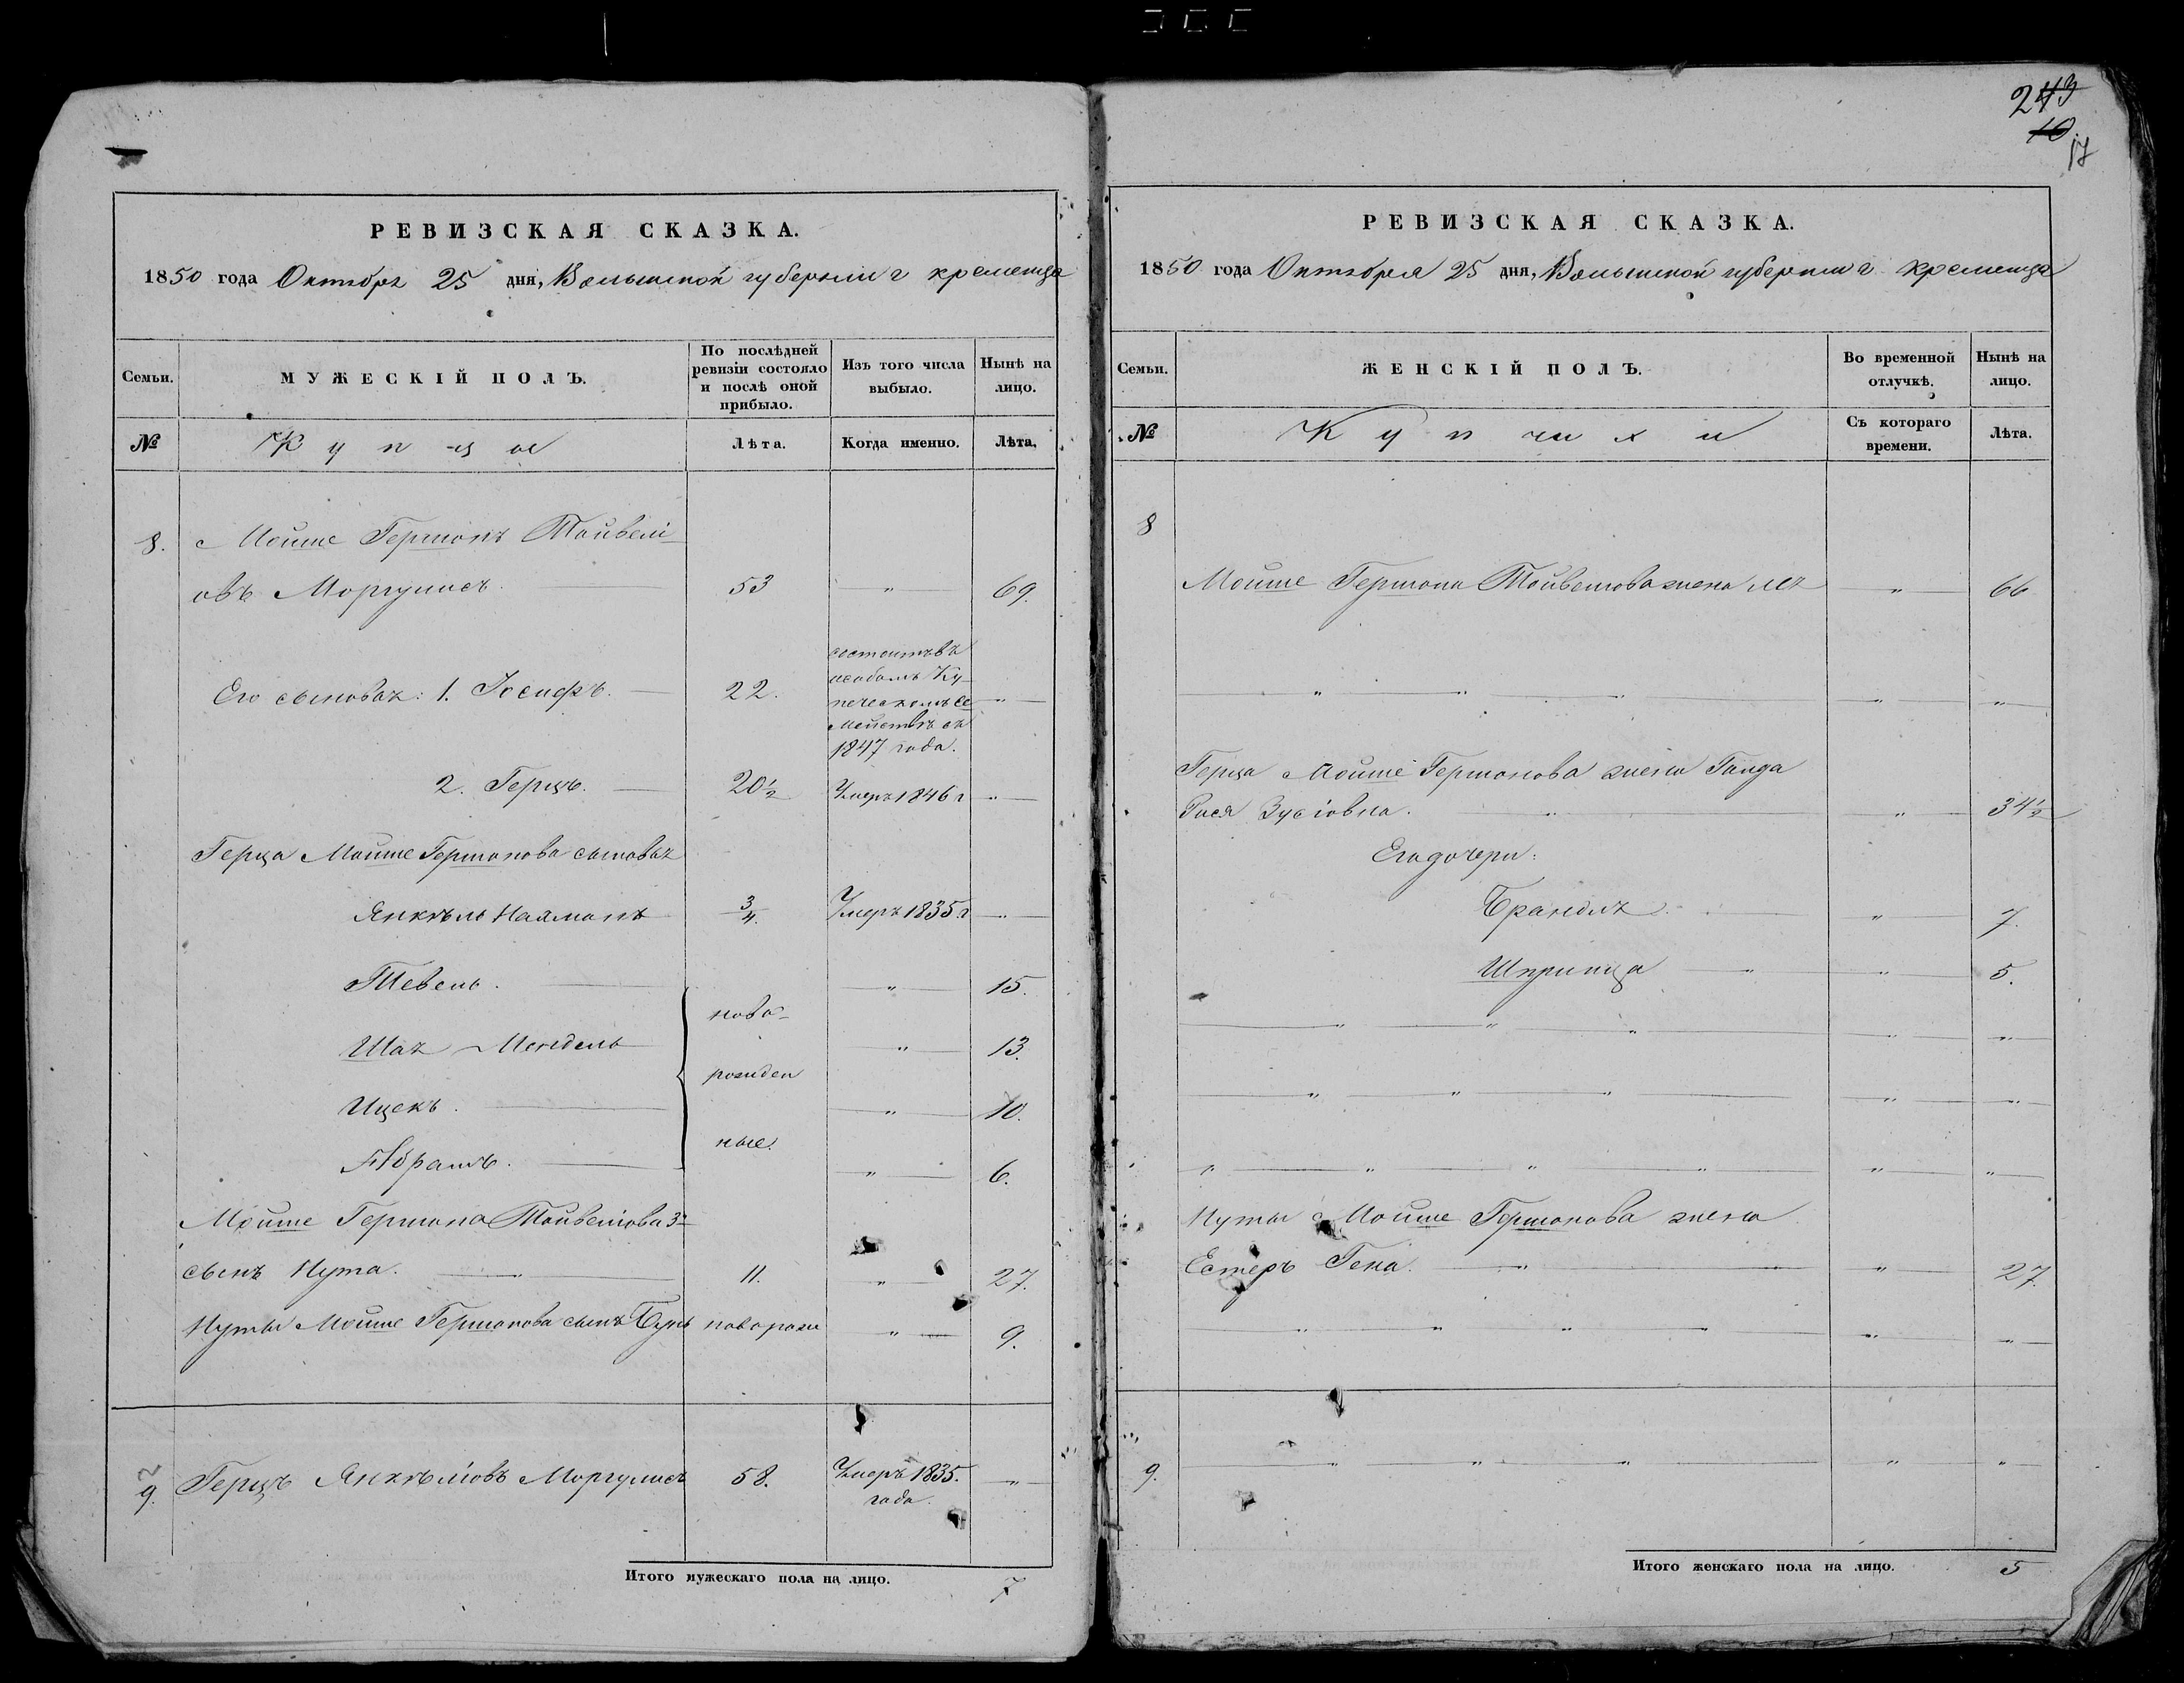 243
10
17
РЕВИЗСКАЯ СКАЗКА.
1850 года Октября 25 дня, Волынской губернии г Кременца
Семьи.
МУЖЕСКІЙ ПОЛЪ.
По послѣдней ревизіи состояло и послѣ оной прибыло.
Изъ того числа выбыло.
Нынѣ на лицо.
№
Купцы
Лѣта.
Когда именно.
Лѣта.
8. Мойше Гершонъ Тойвелі-
овъ Моргулисъ. 53 " 69.
Его сыновья: 1. Іосифъ. 22. состоитъ въ
особомъ Ку-
печескомъ се "
мействѣ съ
1847 года.
2. Герцъ. 20½ Умеръ 1846 г "
Герца Мойше Гершонова сыновья
Янкѣль Нахманъ ¾. Умеръ 1835 г "
Тевель. " 15.
ново-
Шая Мендель " 13.
рожден
Ицекъ. " 10.
ные.
Абрамъ. " 6.
Мойше Гершона Тойвеліова 3й
сынъ Нута. " 11. " 27.
Нуты Мойше Гершонова сынъ новорож " 9.
9. Герцъ Янкѣліовъ Моргулисъ 58. Умеръ 1835. "
года.
Итого мужескаго пола на лицо. 7
РЕВИЗСКАЯ СКАЗКА.
1850 года Октября 25 дня, Волынской губернии г. Кременца
Семьи.
ЖЕНСКІЙ ПОЛЪ.
Во временной отлучкѣ.
Нынѣ на лицо.
№
Купчихи
Съ котораго времени.
Лѣта.
8
Мойше Гершона Тойвелиова жена " 66
" " " " "
Герца Мойше Гершонова жена
Рися Зусіовна. " " 34½
Его дочери:
Брандля " 7.
Шпринца " " 5.
" " " " "
" " " " "
" " " " " "
Нуты Мойше Гершонова жена
Естеръ Гена. " " 27.
" " " " " "
9. " " " " "
Итого женскаго пола на лицо. 5